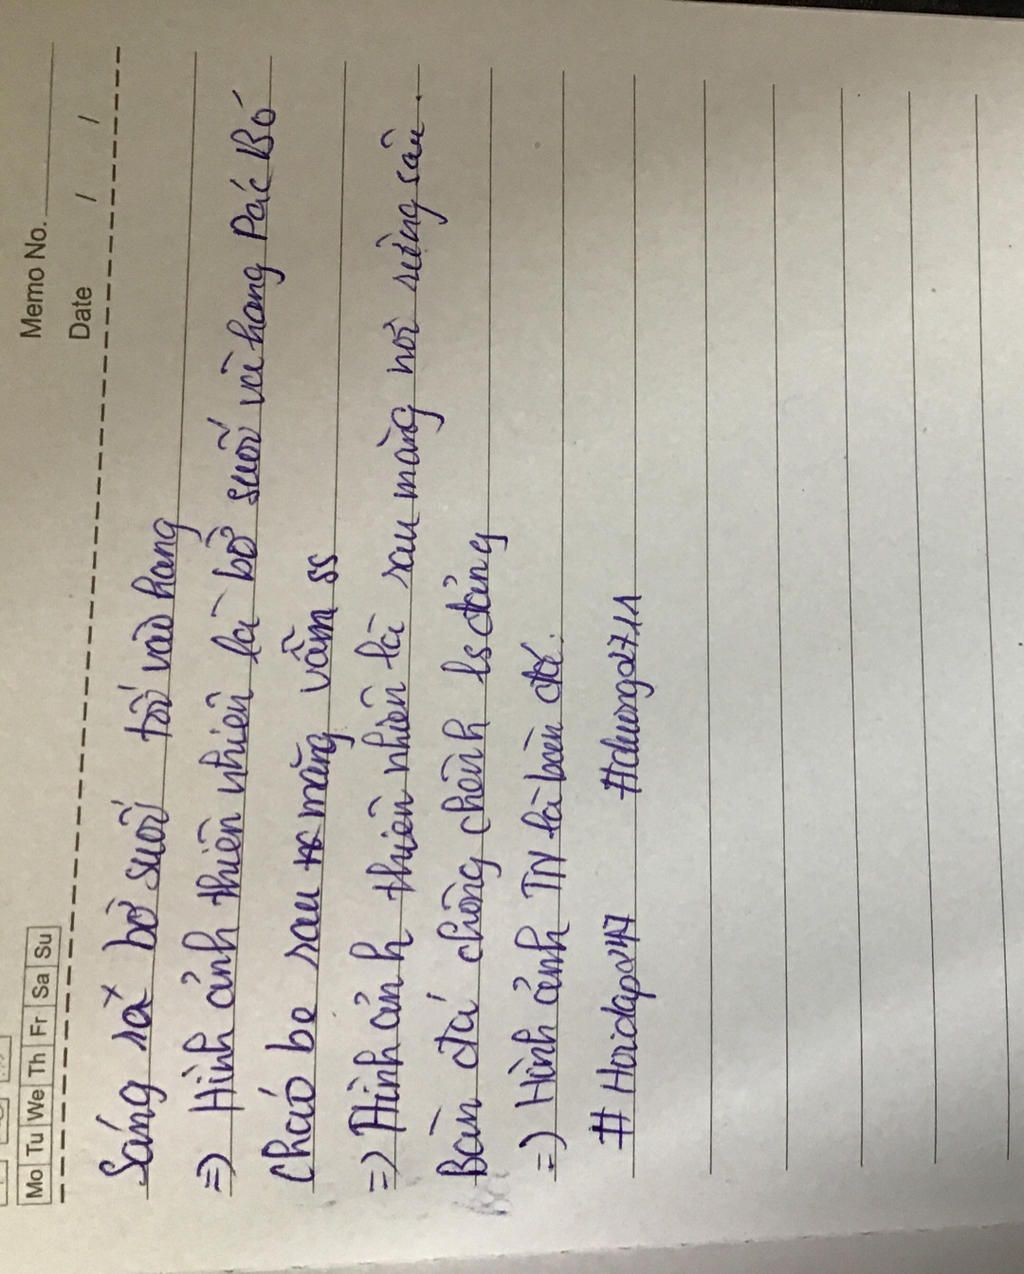 Memo No.
Mo Tu We Th Fr Sa Su
Date / /
Sáng rả bờ suối tối vào hang
=) Hình ảnh thiên nhiên là bờ suối và hang Pác Bó
Cháo be rau măng vẫn ss
=) Hình ảnh thiên nhiên là rau màng nơi rừng sâu.
Bàn đá chông chênh ls đảng
=) Hình ảnh TN là bàn đá.
#Hoidap247 #duong2711